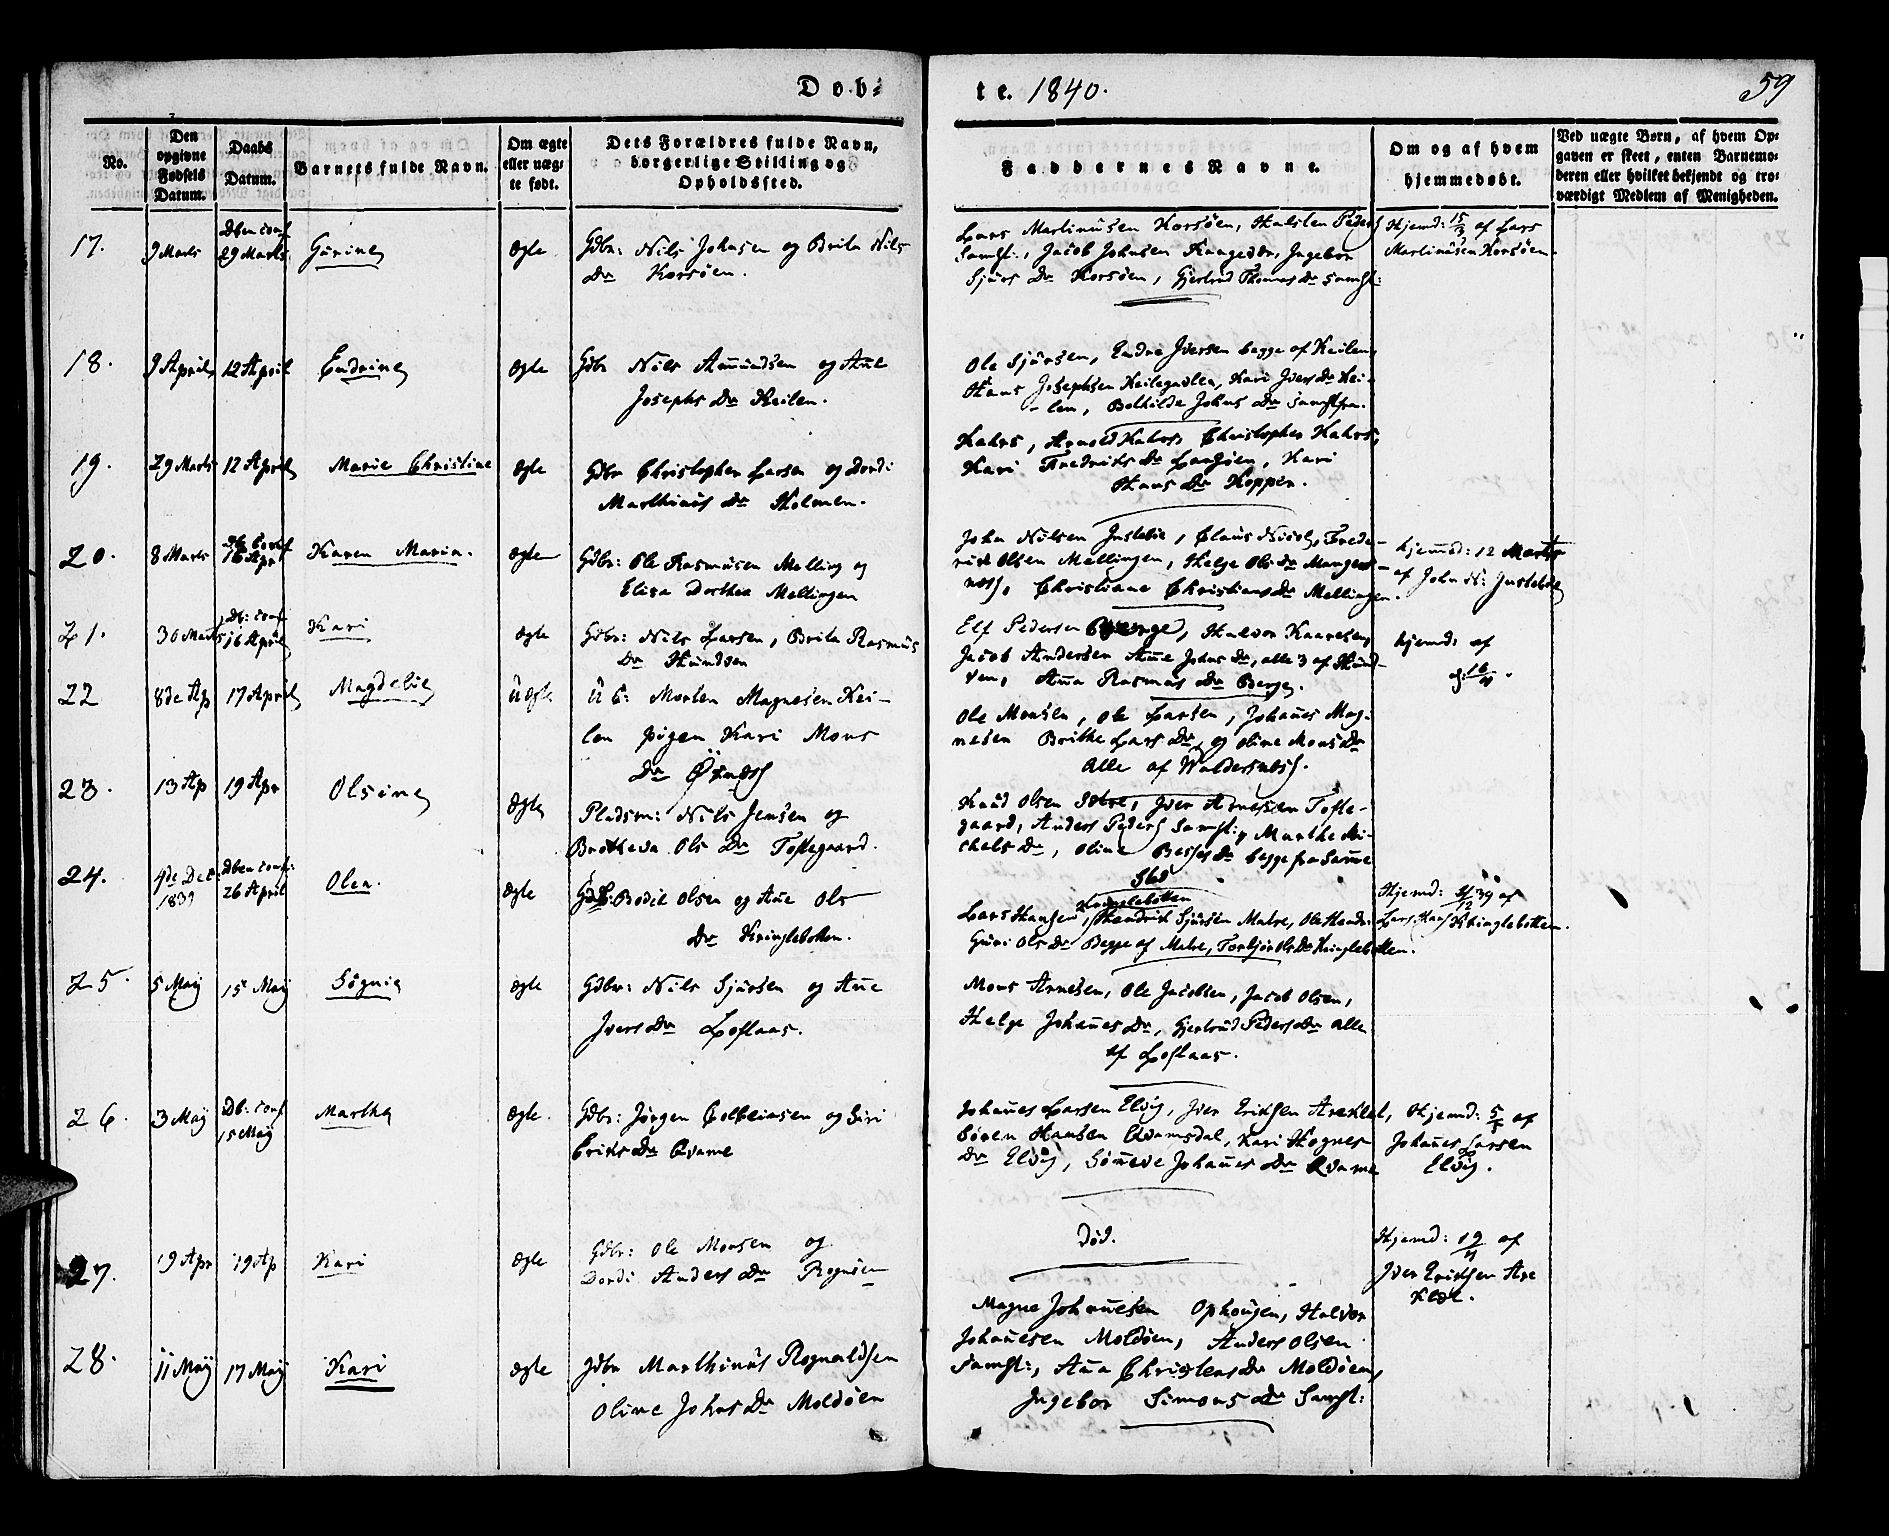 Døb-
te. 1840.
59
No.
Den opgivne Fødsels Datum.
Daabs Datum.
Barnets fulde Navn.
Om ægte eller uægte født.
Dets Forældres fulde Navn, borgerlige Stilling og Opholdssted.
Faddernes Navne.
Om og af hvem hjemmedøbt.
Ved uægte Børn, af hvem Opgaven er skeet, enten Barnemoderen eller hvilket bekjendt og troværdigt Medlem af Menigheden.
17. 9 Marts Dben conf 29 Marts Gurine Ægte
Gdbr: Nils Johnsen og Brita Nils
Dr Korsøen.
Lars Martinusen Korsøen, Halsten Peders
Samst:, Jacob Johnsen Kaagedtr, Ingebor
Sjurs Dr Korsøen, Gjertrud Thomas Dr Samst:
Hjemd: 15/3 af Lars
Martinusen Korsøen.
18. 9 April 12 April Endrine Ægte
Gdbr Nils Amundsen og Ane
Josephs Dr Keilen.
Ole Sjursen, Endre Iversen begge af Keilen,
Hans Josephsen Keilegavlen, Kari Ivers Dr Kei-
len, Bothilde Johns Dr Samstfra.
19. 29 Marts 12 April Marie Christine Ægte
Gdbr Christopher Larsen og Dordi
Marthinus Dr Holmen.
Kahrs, Arnold Kahrs, Christopher Kahrs,
Kari Fredriks Dr Langøen, Kari
Hans Dr Koppen.
20. 8 Marts Db Conf 16 Apr Karen Maria. Ægte
Gdbr: Ole Rasmusen Melling og
Elisa Dorthea Mellingen
John Nilsen Justebø, Claus Nicols, Frede-
rick Olsen Mellingen, Helge Ols Dr Manger-
næs, Christiane Christians Dr Mellingen.
hjemd: 12 Marts
af John N: Justebø
21. 30 Marts Db: conf 16 April Kari Ægte
Gdbr: Nils Larsen, Brita Rasmus
Dr Hundven
Elf Pedersen Berge, Halvor Kaaresen,
Jacob Andersen Ane Johns Dr, alle 3 af Hund-
ven, Ana Rasmus Dr Berge.
hjemd: af
22 8de Ap 17 April Magdeli Uægte
U C: Morten Magnesen Kei-
len pigen Kari Mons
Dr
Ole Monsen, Ole Larsen, Johanes Mag-
nesen Brithe Lars Dr og Oline Mons Dr
Alle af Waldersnæs.
23. 13 Ap 19 Apr Olsine Ægte
Pladsm: Nils Jensen og
Ols Dr Toftegaard.
Knud Olsen Sætre, Iver Arnesen Tofte-
gaard, Anders Peders Samst: Marthe Mi-
chels Dr, Oline Dr begge fra Samme
Sted
24. 4de Dec: 1839 Dben conf: 26 April Olea. Ægte
Gdb: Bodil Olsen og Ane Ols
Dr Kringlebotten.
Kringlebotten
Lars Hansen, Hendrick Sjursen Matre, Ole Hendri
Guri Ols Dr Begge af Matre, Torbjør Ols Dr Kringlebotten.
Hjemd: 39 af
Lars Hans Kringlebotten.
25. 5 Maij 15 Maij Søgnie Ægte
Gdbr: Nils Sjursen og Ane
Ivers Dr Loftaas.
Mons Arnesen, Ole Jacobsen, Jacob Olsen,
Helge Johanes Dr, Gjertrud Peders Dr alle
af Loftaas.
26. 3 Maij Db: conf 15 Maij Martha Ægte.
Gdbr: Jørgen Colbeinsen og Siri
Eriks Dr Qvame
Johanes Larsen Elvig, Iver Eriksen Areklet,
Søren Hansen Qvamsdal, Kari Hognes
Dr Elvig, Søneve Johanes Dr Qvame
Hjemd: 5/5 af
Johanes Larsen
Elvig.
27. 19 Apr 19 Ap Kari Ægte
Gdbr: Ole Monsen og
Dordi Anders Dr Rognsen
Død.
Hjemd: 19/4 af
Iver Eriksen Are
klet.
28. 11 Maij 17 Maij Kari Ægte
Gdbr Marthinus Rognaldsen
Oline Johns Dr Moldøen
Magne Johanesen Ophougen, Halvor
Johanesen Moldøen, Anders Olsen
Samst:, Ana Christens Dr Moldøen,
Ingebor Simons Dr Samst: